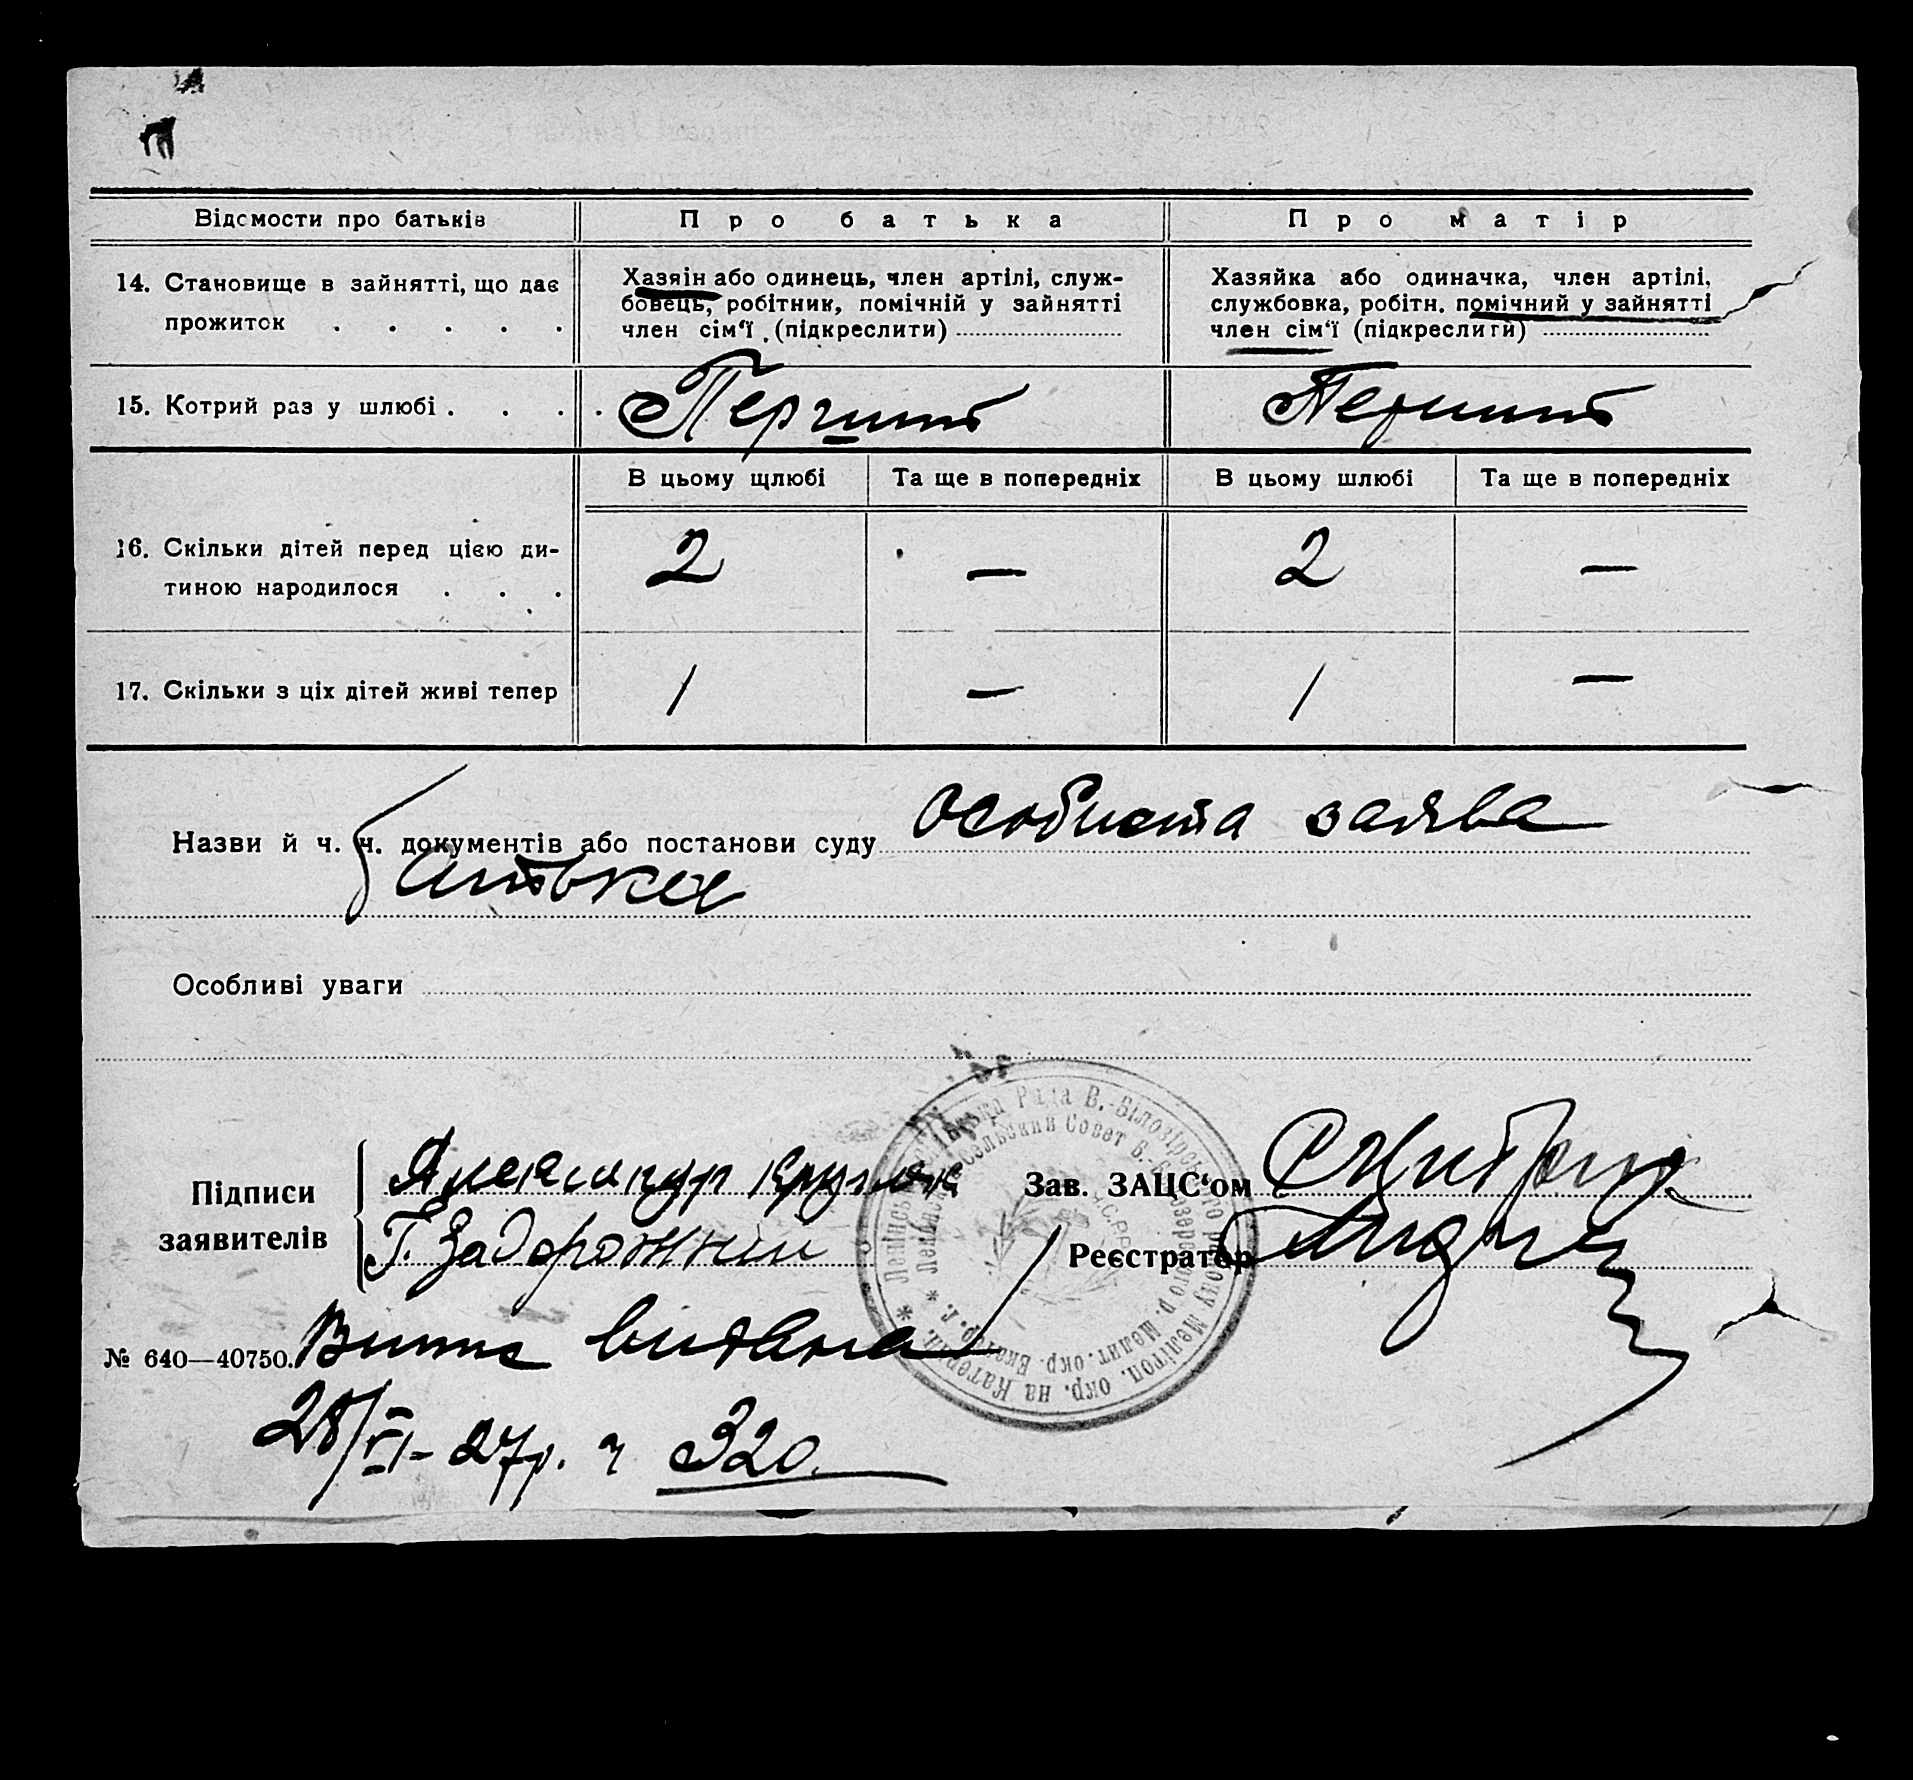 Відомости про батьків
Про батька
Про матір
14. Становище в зайнятті, що дає
прожиток . . . . .
Хазяін або одинець, член артілі, служ-
бовець, робітник, помічній у зайнятті
член сім'ї (підкреслити)
Хазяйка або одиначка, член артілі,
службовка, робітн. помічний у зайнятті
член сім'ї (підкреслити)
15. Котрий раз у шлюбі . . . .
Перший
Перший
В цьому щлюбі
Та ще в попередніх
В цьому шлюбі
Та ще в попередніх
16. Скільки дітей перед цією ди-
тиною народилося . . .
2
—
2
—
17. Скільки з ціх дітей живі тепер
1
—
1
—
Назви й ч. ч. документів або постанови суду особиста заява
батька
Особливі уваги
Підписи
заявителів
Александр
Г. Задорожній
Зав. ЗАЦС'ом
Реєстратор
Рада В.-Білозірського району Мелітоп. окр. на Катерин.
Совет Б.-Белозерского р. Мелит. окр. Екатер. г.
№ 640—40750.
видана
28/VI-27р. ч 320.